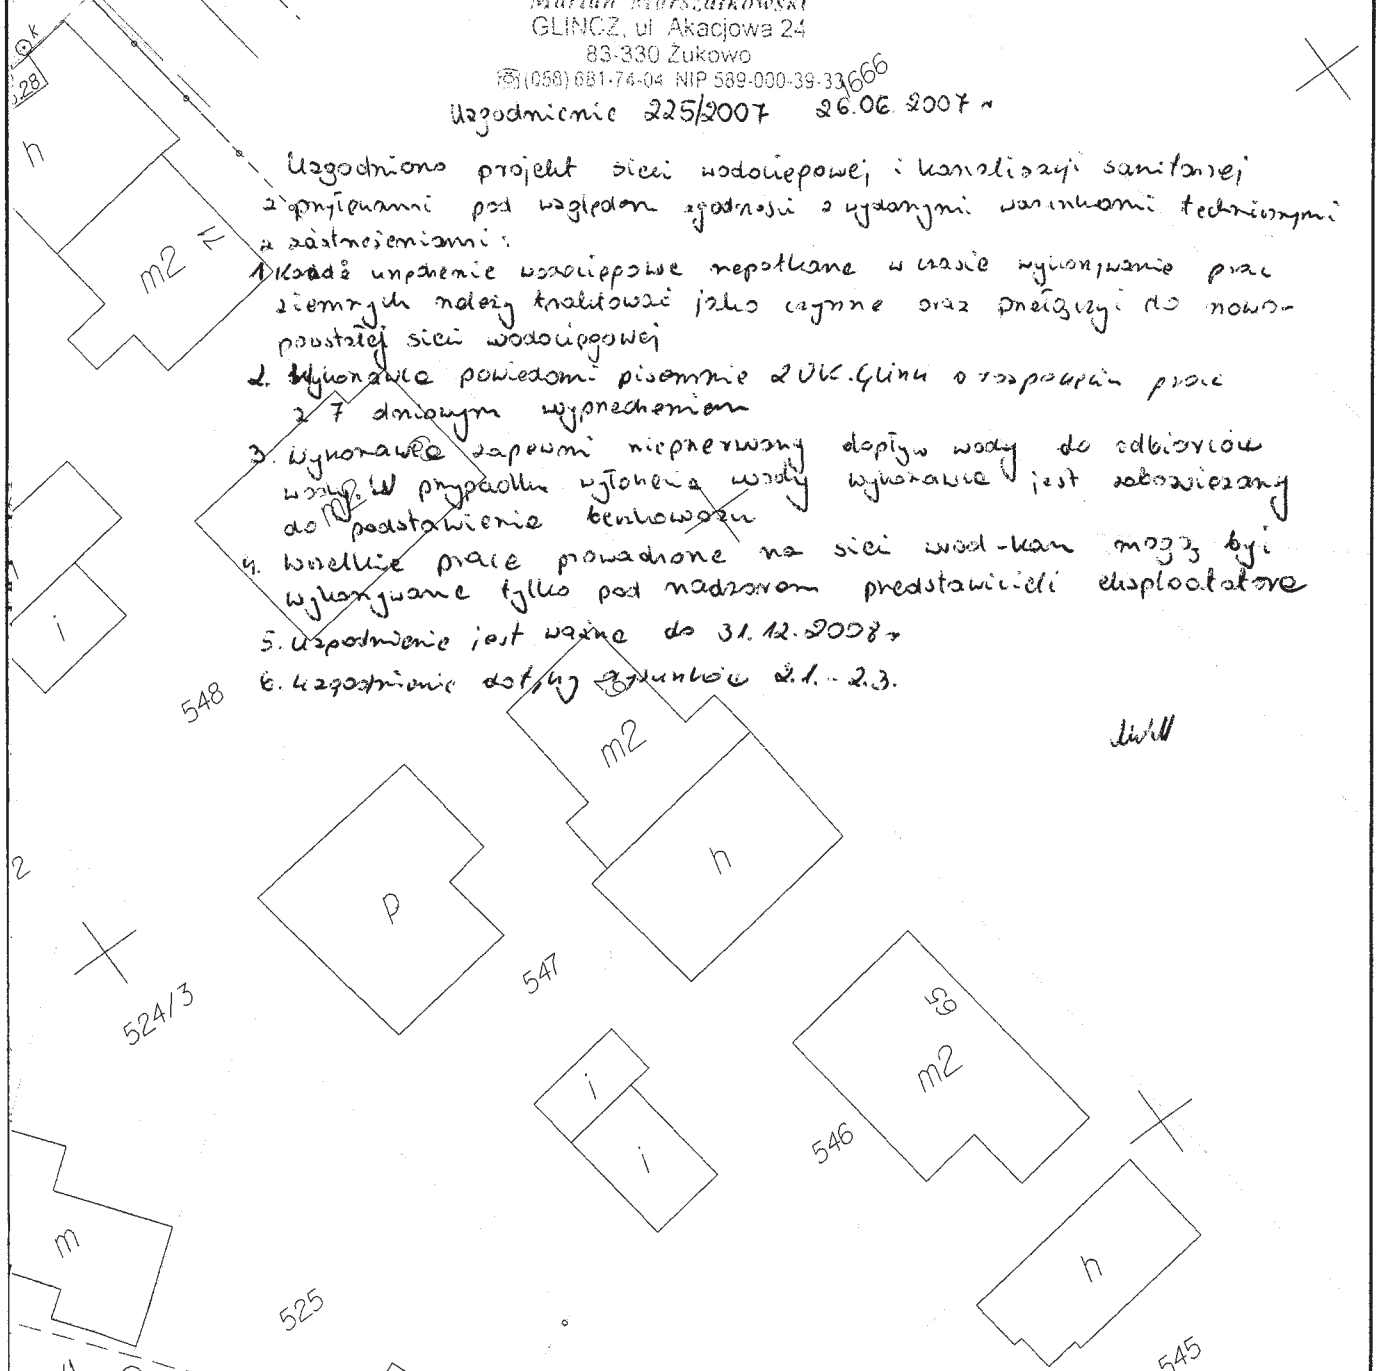 Marian Marszałkowski
GLINCZ, ul. Akacjowa 24
83-330 Żukowo
(058) 681-74-04 NIP 589-000-39-33
1666
Uzgodnienie 225/2007 26.06.2007 r
Uzgodniono projekt sieci wodociągowej i kanalizacji sanitarnej
z przyłączami pod względem zgodności z wydanymi warunkami technicznymi
z zastrzeżeniami:
1. Każde urządzenie wodociągowe napotkane w czasie wykonywania prac
ziemnych należy traktować jako czynne oraz przełączyć do nowo-
powstałej sieci wodociągowej
2. Wykonawca powiadomi pisemnie ZUK Glincz o rozpoczęciu prac
z 7 dniowym wyprzedzeniem
3. Wykonawca zapewni nieprzerwany dopływ wody do odbiorców
wody. W przypadku wyłączenia wody wykonawca jest zobowiązany
do podstawienia beczkowozu
4. Wszelkie prace prowadzone na sieci wod-kan mogą być
wykonywane tylko pod nadzorem przedstawicieli eksploatatora
5. Uzgodnienie jest ważne do 31.12.2008 r
6. Uzgodnienie dotyczy rysunków 2.1. - 2.3.
k
.28
h
m2
12
i
548
m2
h
p
2
547
524/3
65
m2
i
i
546
m
h
525
545